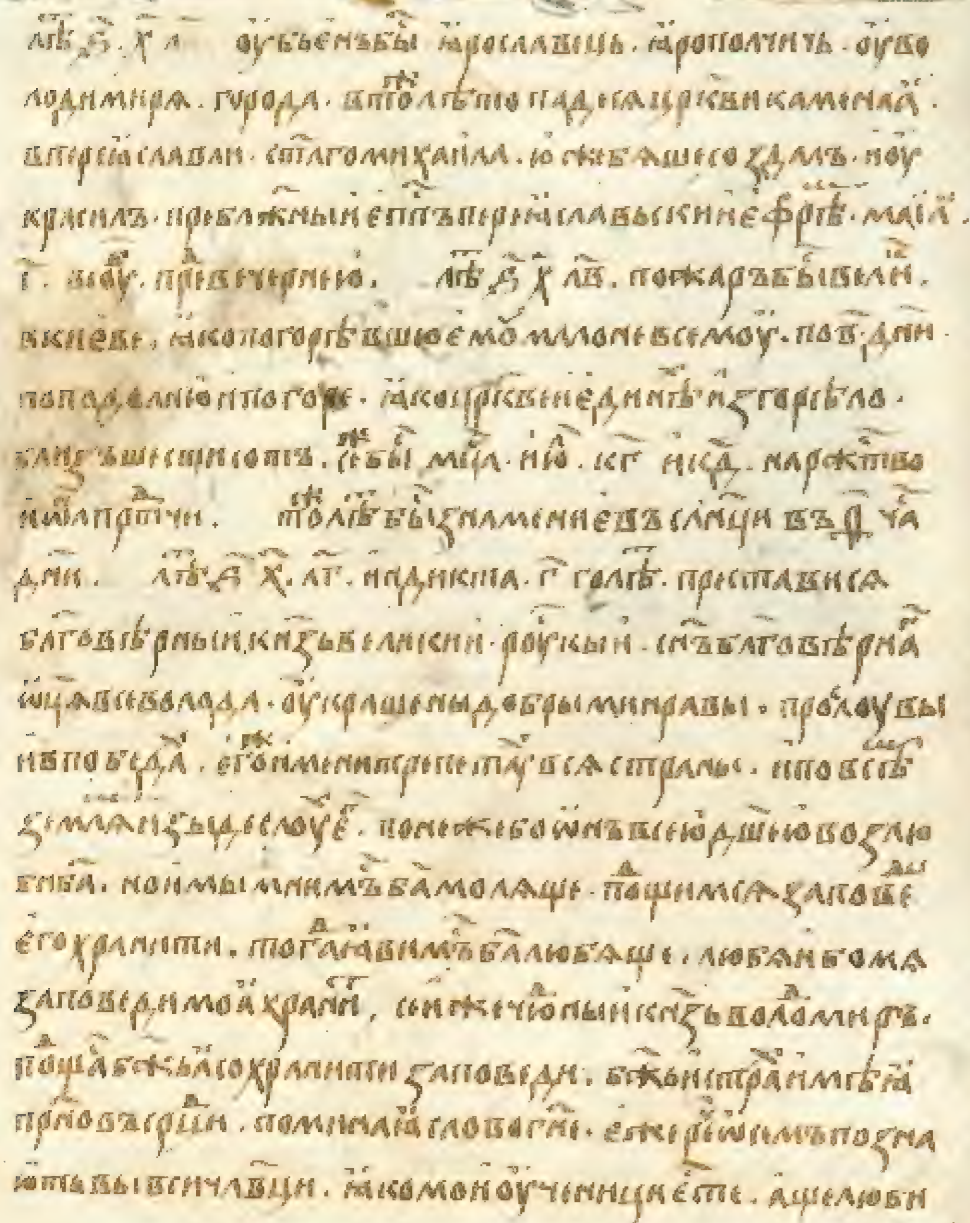 лѣ҃ ҂ѕ҃ . х҃ л оубьенъ бы҃ ӕрославець . ӕрополчичь . оу во
лодимирѧ . города . в то ж лѣто падесѧ цр҃кви каменаӕ .
в переӕславли . ст҃аго михаила . юже бѧше создалъ . и оу
красилъ . пребл҃жныи еп҃пъ переӕславьскии ефрѣ . маиӕ .
г҃ . в іоу . пре вечернею . лѣ҃ ҂ѕ҃ х҃ л҃в . пожаръ бы҃ велии .
в киеве . ӕко погорѣвшю емо мало не всемоу . по в҃ . дн҃и .
по подолию и по горе . ӕко цр҃квеи единѣ изгорѣло .
близъ шести сотъ . се ж бы҃ мс҃ца . ию . к҃г и к҃д . на рожтво
иѡ҃ана прдтчи . то ж лѣ бы҃ знамение въ слн҃ци въ ча
дн҃и . лѣ҃ ҂ѕ҃ х҃ . л҃г . индикта . г҃ го лѣ҃ . преставися
бл҃говѣрныи кнз҃ь великии . роускыи . сн҃ъ бл҃говѣрна
ѡц҃ѧ всеволода . оукрашены добрыми нравы . прослоувы
и в победа . его ж имени трепетаху всѧ страны . и по всѣ
землѧ изыде слоу е҃ . понеже бо ѡнъ всею дш҃ею возлю
би ба҃ . но и мы мнимъ ба҃ молѧще . пощимсѧ заповеды
его хранити . тогда ӕвимъ ба҃ любѧще . любѧи бо мѧ
заповеди моӕ храни , сии же чюдныи кнз҃ь володомиръ .
поща бж҃ьӕ сохранити заповеди . бж҃ьи стра имѣӕ
прно въ срц҃и . поминаӕ слово гн҃е . еже рѣ ѡ семъ позна
ють вы вси члв҃ци . ӕко мои оученици есте . аще люби